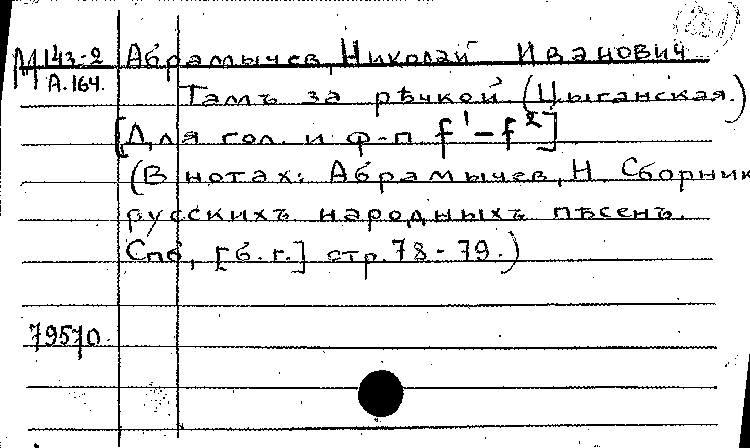 М 143-2 Абрамычев, Николай Иванович
А.164. Тамъ за рѣчкой. (Цыганская.)
[Для гол. и ф-п f¹-f²]
(В нотах: Абрамычев, Н. Сборник
русскихъ народныхъ пѣсенъ.
Спб, [б.г.] стр. 78-79.)
79570.